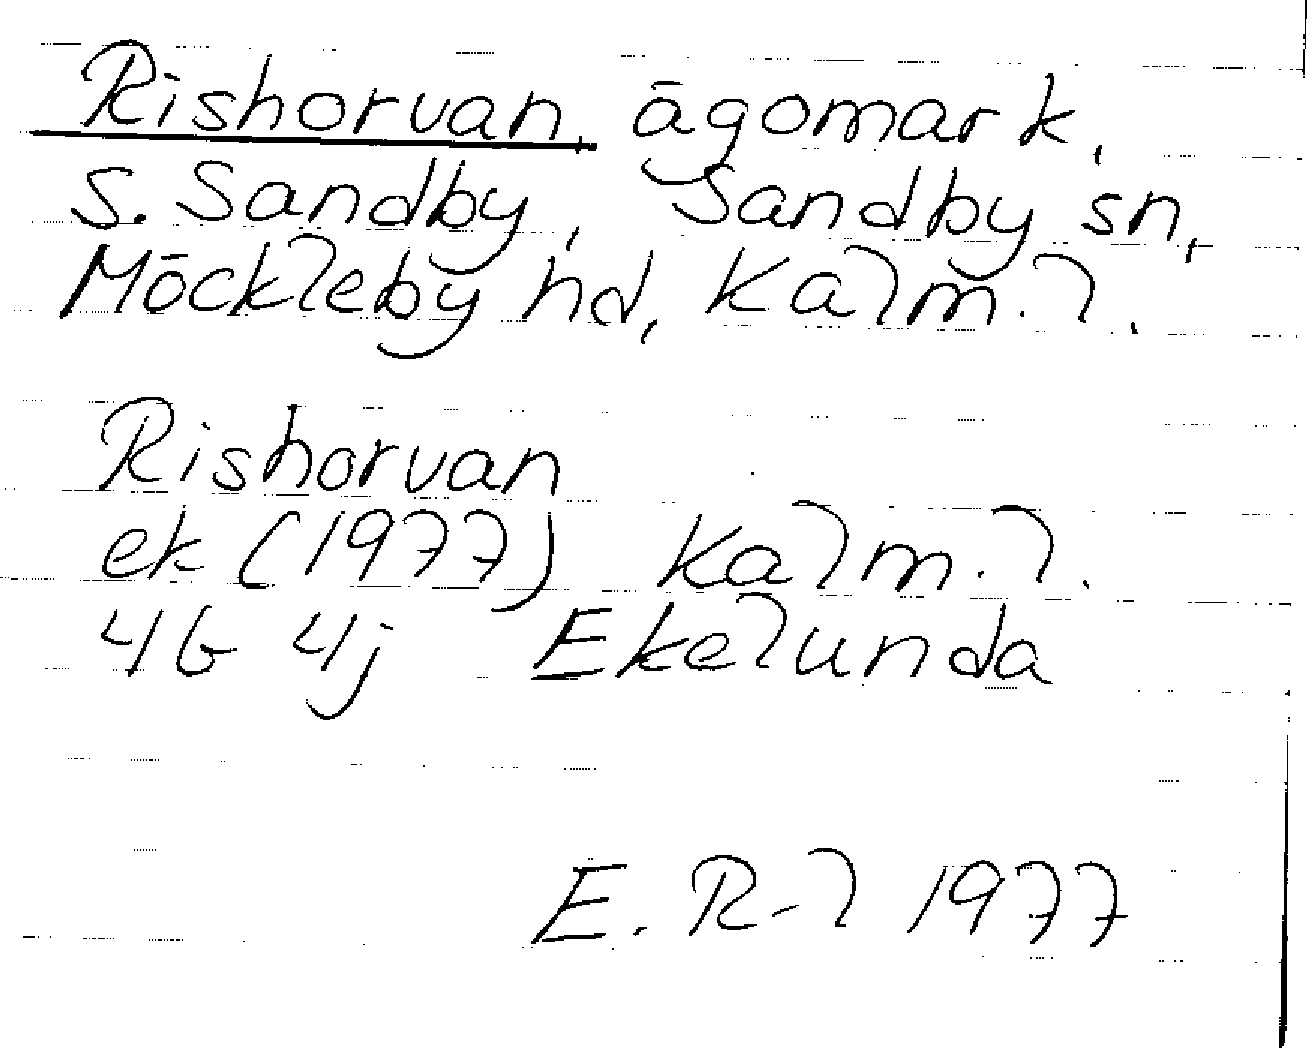 Rishorvan, ägomark,
S. Sandby, Sandby sn,
Möckleby hd, Kalm. l.
Rishorvan
ek (1977) Kalm. l.
4G 4j Ekelunda
E. R-l 1977